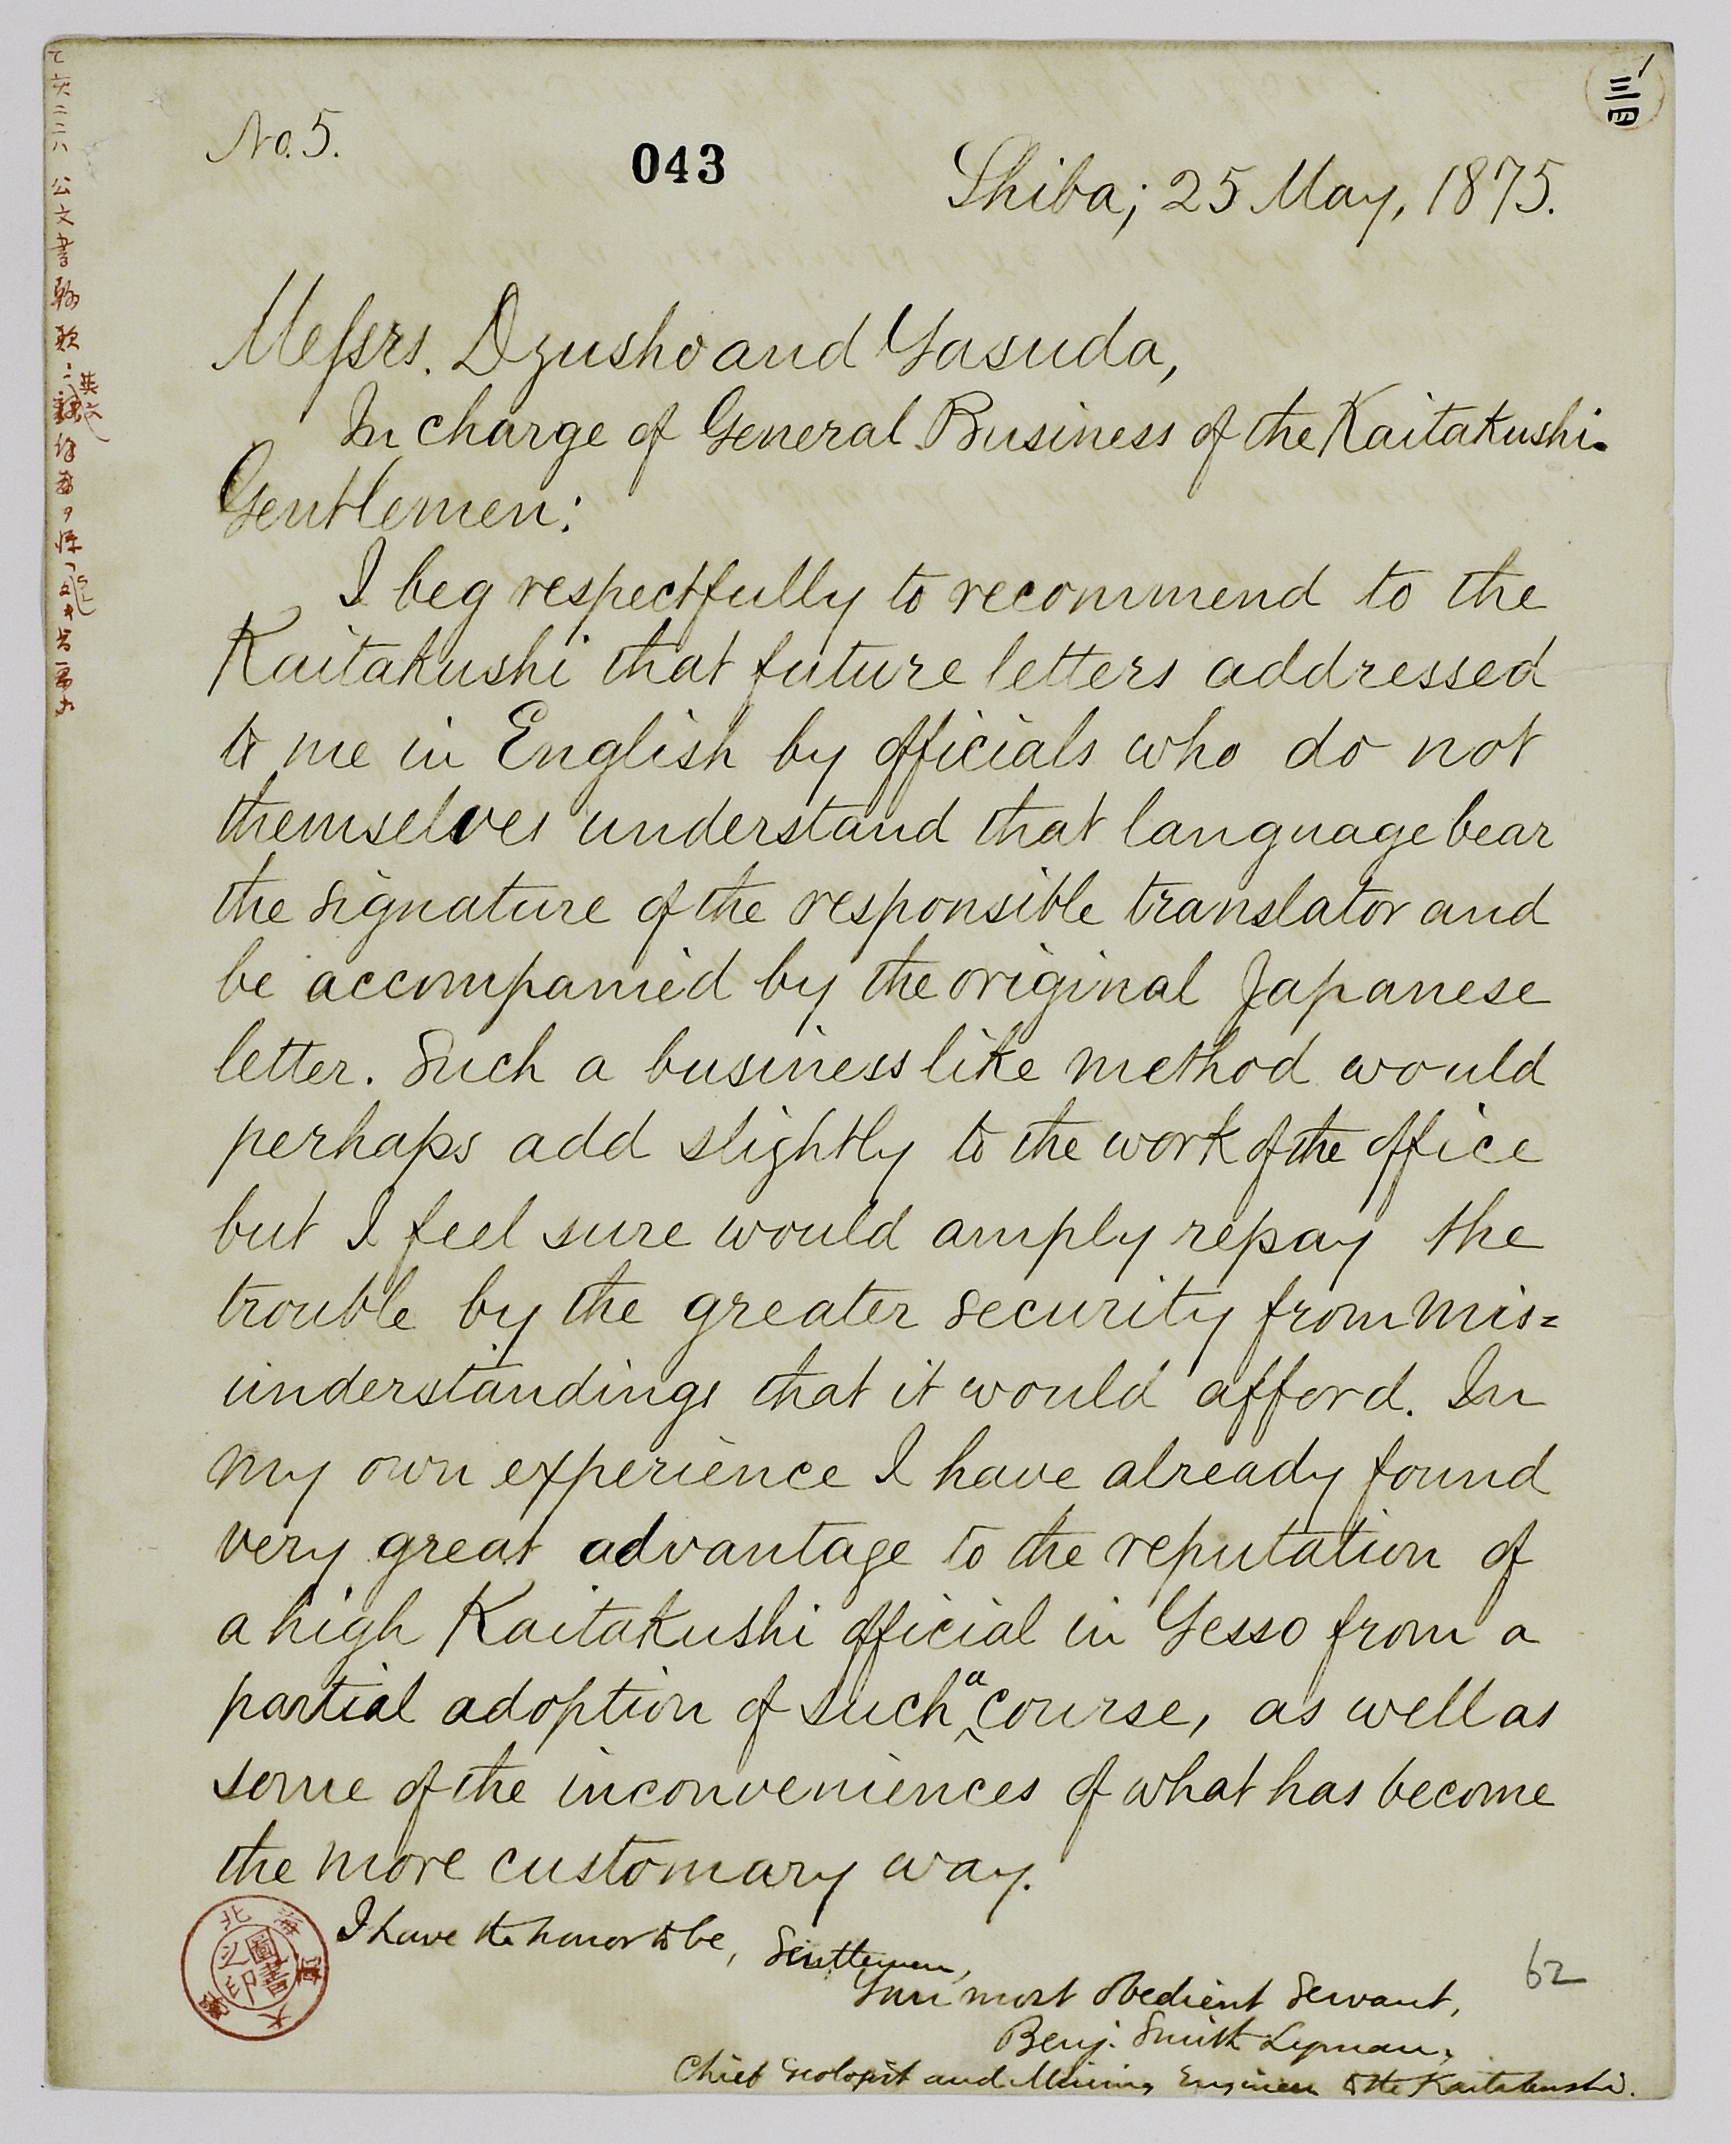 No. 5.
043
三四
Shiba; 25 May, 1875.
Messrs. Dzusho and Yasuda,
In charge of General Business of the Kaitakushi.
Gentlemen:
I beg respectfully to recommend to the
Kaitakushi that future letters addressed
to me in English by officials who do not
themselves understand that language bear
the signature of the responsible translator and
be accompanied by the original Japanese
letter. Such a business like method would
perhaps add slightly to the work of the office
but I feel sure would amply repay the
trouble by the greater security from mis=
understandings that it would afford. In
my own experience I have already found
very great advantage to the reputation of
a high Kaitakushi official in Yesso from a
partial adoption of such a course, as well as
some of the inconveniences of what has become
the more customary way.
I have the honor to be, Gentlemen,
Your most obedient Servant,
Benj. Smith Lyman,
Chief Geologist and Mining Engineer to the Kaitakushi.
62
北海道大學
圖書之印
公文書翰
英文